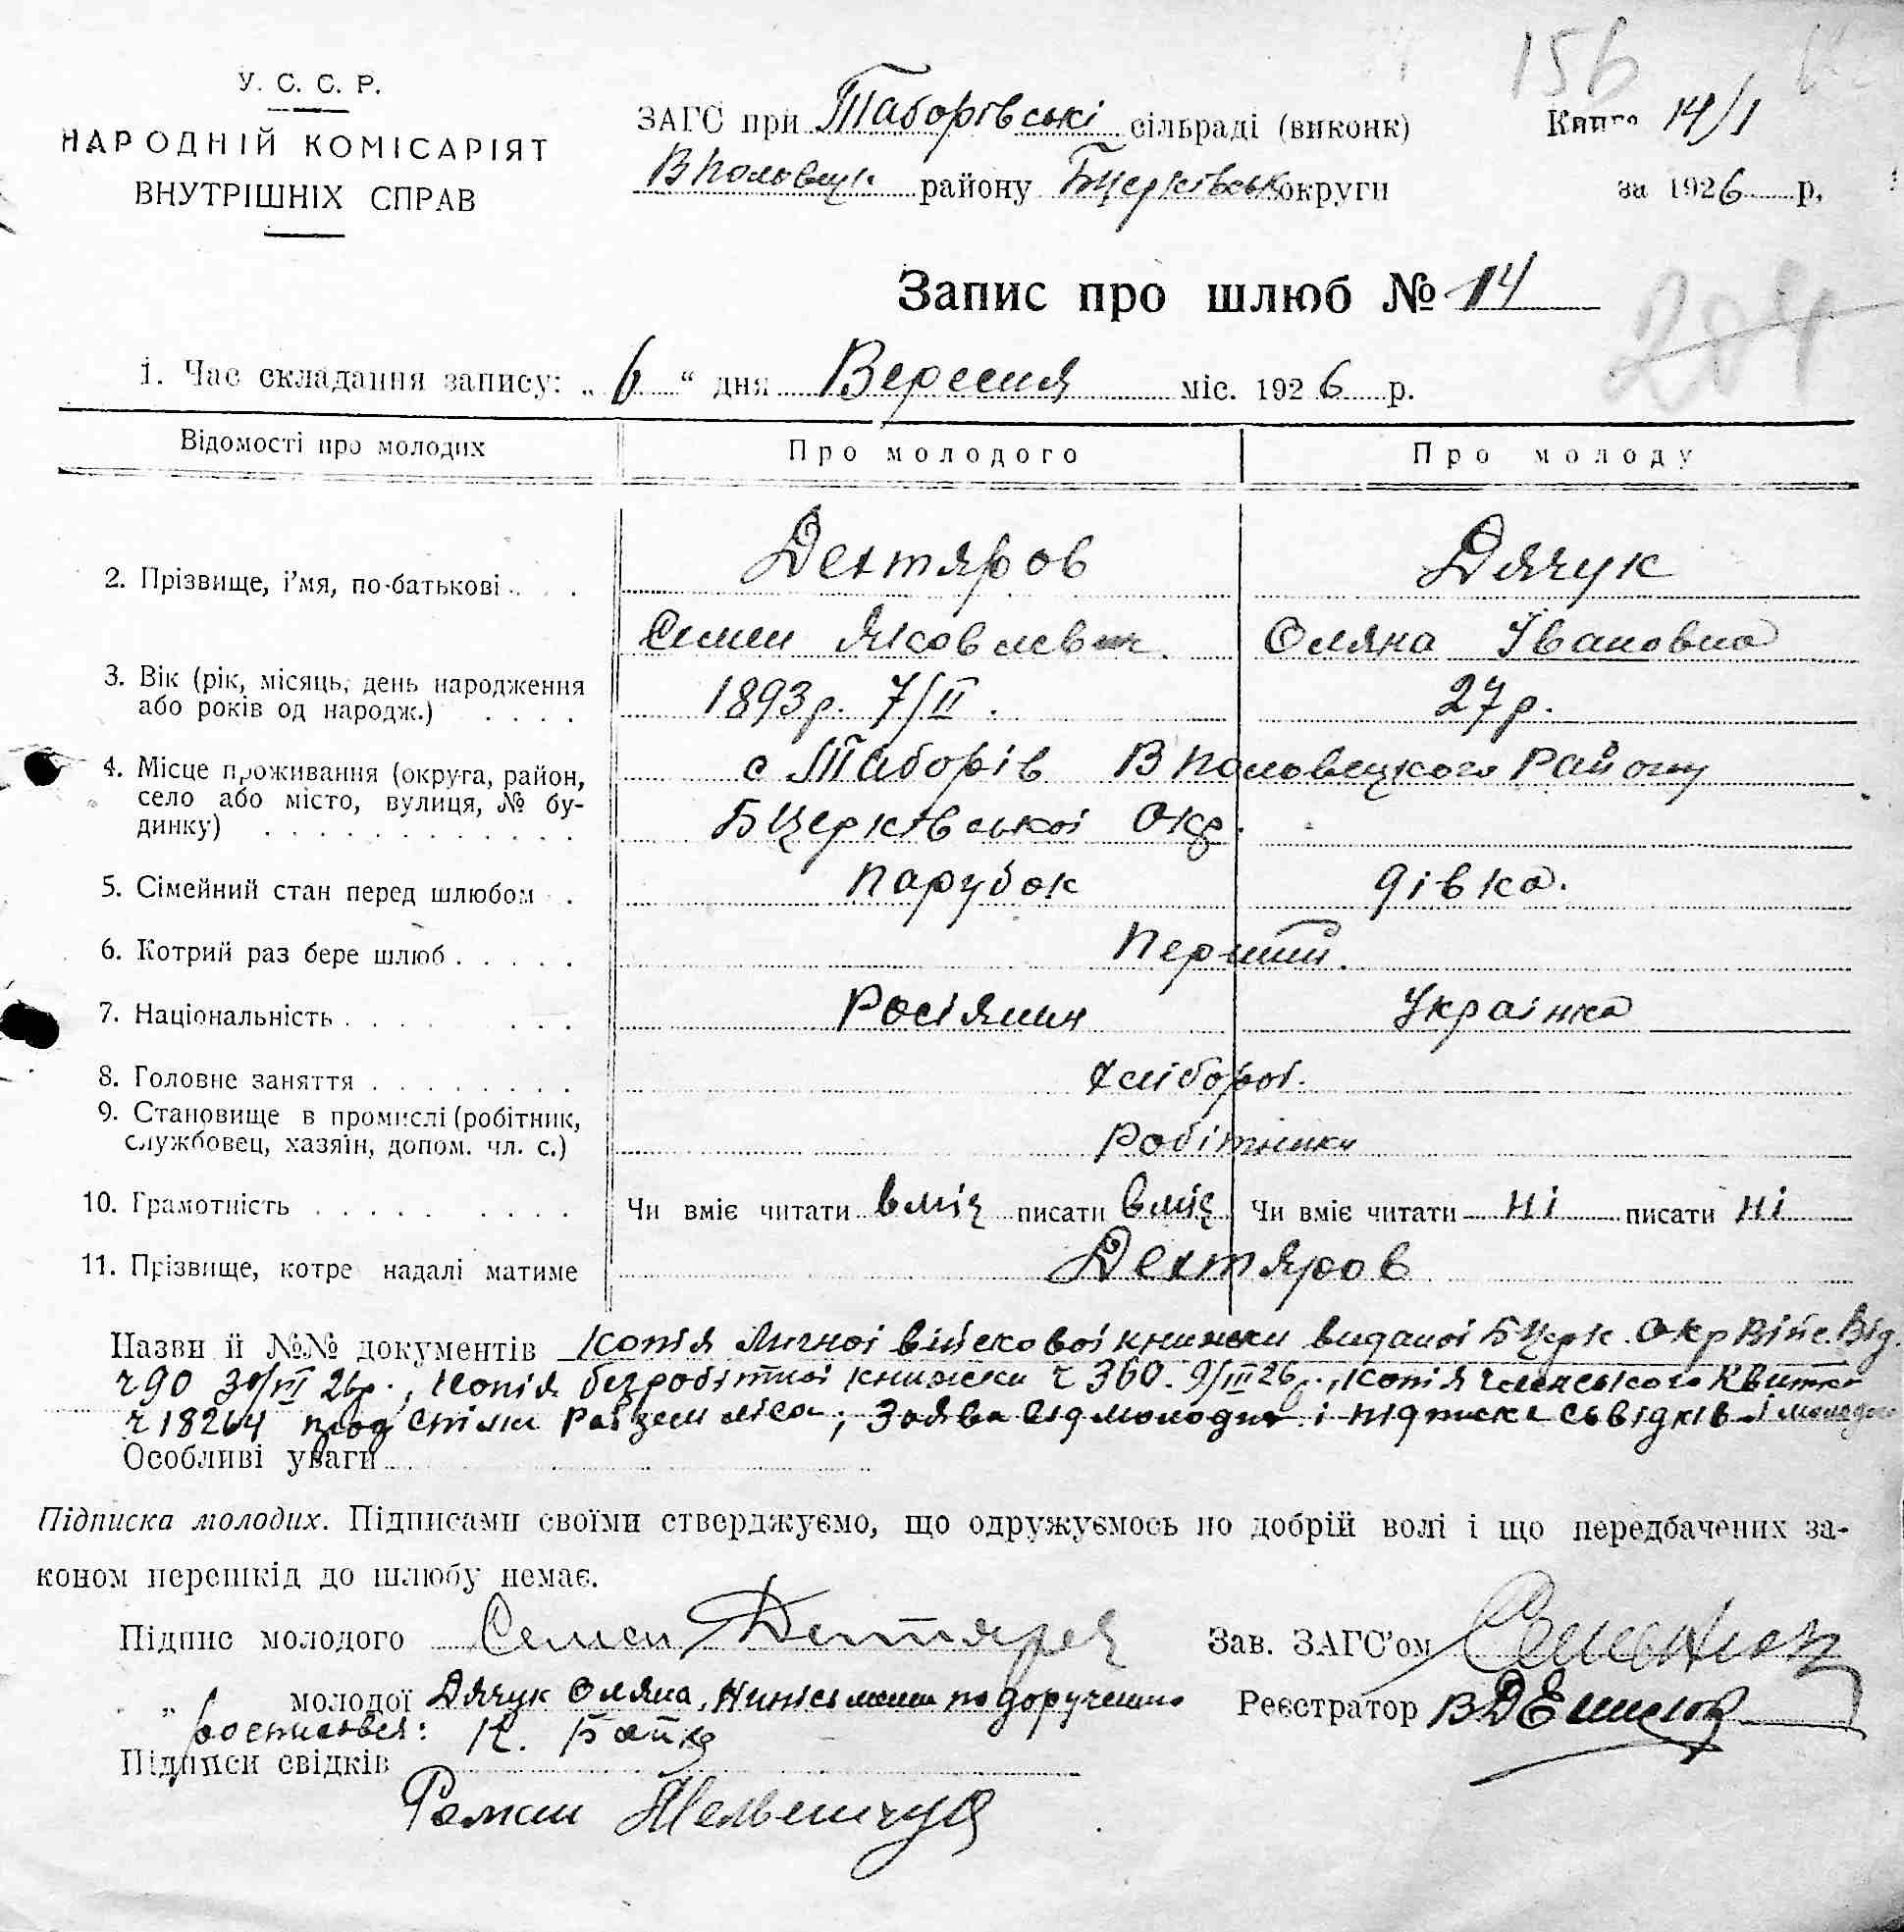 156
У. С. С. Р.
НАРОДНІЙ КОМІСАРІЯТ
ВНУТРІШНІХ СПРАВ
ЗАГС при Таборівські сільраді (виконк)
Книга 14/1
В Половецк району БЦерківськ округи
за 1926 р.
Запис про шлюб № 14
204
1. Час складання запису: „ 6 “ дня Вересня міс. 1926 р.
Відомості про молодих Про молодого Про молоду
2. Прізвище, і'мя, по-батькові . . . Дехтяров Дячук
Семен Яковлевич Оляна Івановна
3. Вік (рік, місяць, день народження
або років од народж.) . . . . 1893 р. 7/II. 27 р.
4. Місце проживання (округа, район,
село або місто, вулиця, № бу-
динку) . . . . . . . . . . . .
с Таборів В Половецкого Району
БЦерківської Окр.
5. Сімейний стан перед шлюбом . . парубок дівка.
6. Котрий раз бере шлюб . . . . . перший.
7. Національність . . . . . . . . Росіянин Українка
8. Головне заняття . . . . . . . . Хлібороб.
9. Становище в промислі (робітник,
службовец, хазяїн, допом. чл. с.) робітники
10. Грамотність . . . . . . . . . Чи вміє читати вміє писати вміє Чи вміє читати ні писати ні
11. Прізвище, котре надалі матиме Дехтяров
Назви й №№ документів Копія Личної військової книжки виданої БЦерк. Окр Війс. Від.
ч 90 26р., копія безробітної книжки ч 360. 9/III 26 р., копія членського Квитка
ч 18264 спілки ліса; Заява від молодих і підписка свідків і молодого
Особливі уваги
Підписка молодих. Підписами своїми стверджуємо, що одружуємось по добрій волі і що передбачених за-
коном перешкід до шлюбу немає.
Підпис молодого Семен Дехтярев
Зав. ЗАГС'ом Семенюк
„ молодої Дячук Оляна, Неписьменна по дорученню
Реєстратор
росписався: К. Бойко
Підписи свідків
Роман